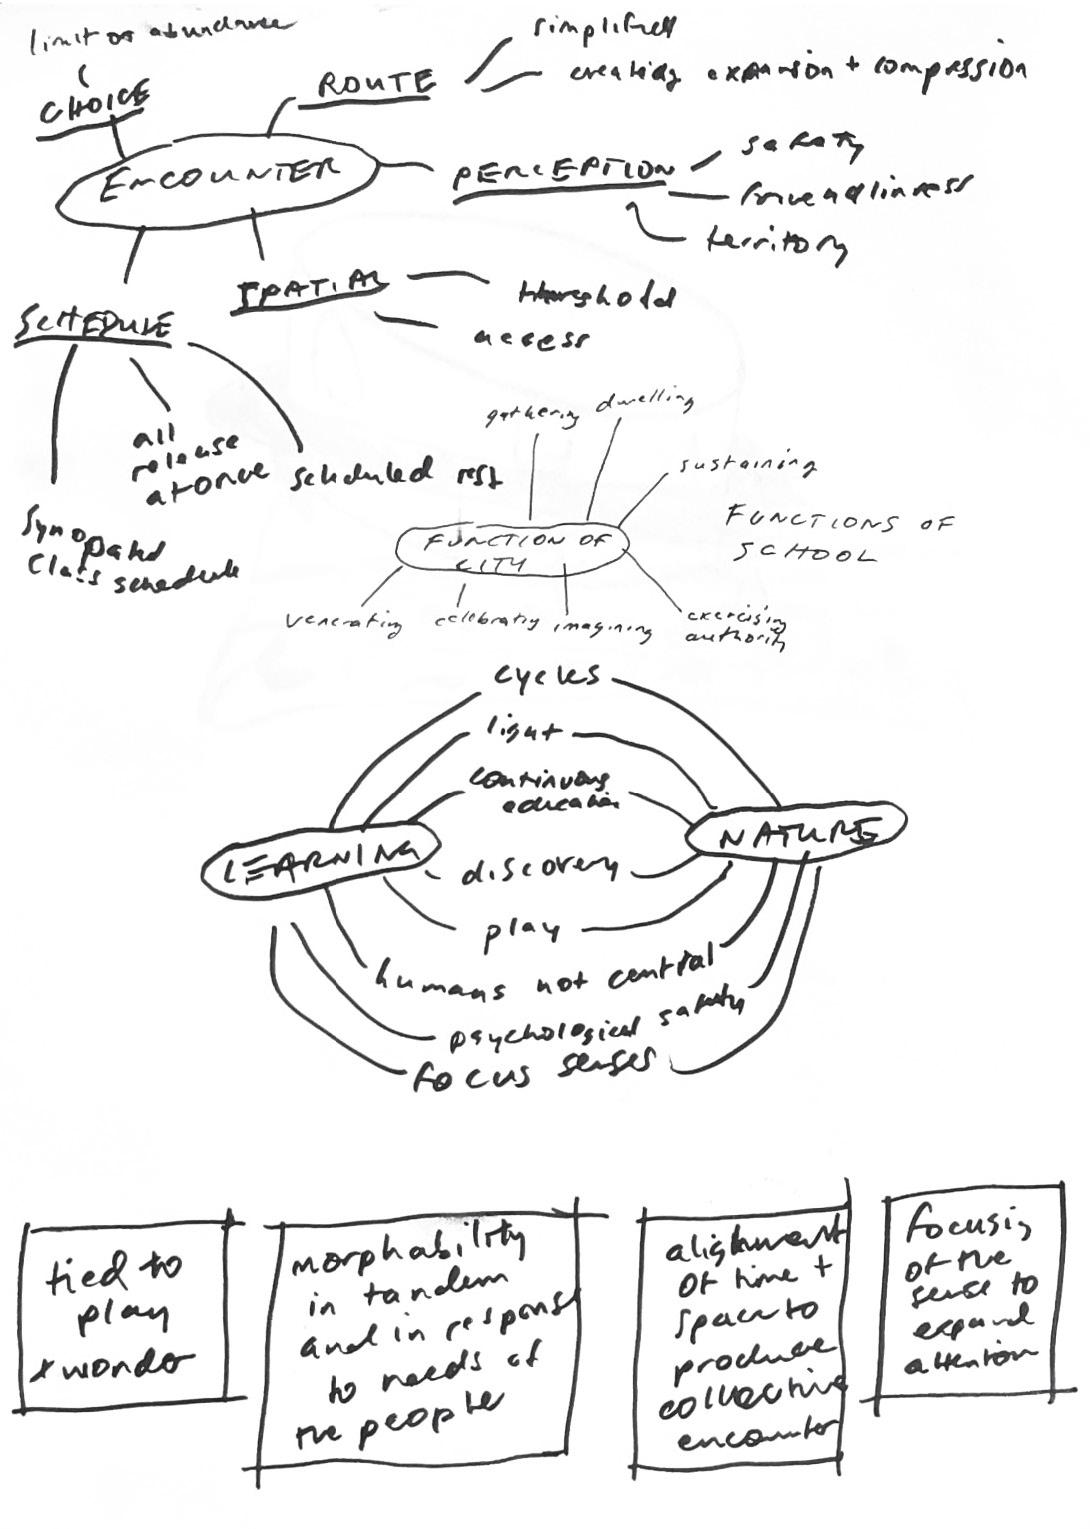 limit or abundance
CHOICE
ROUTE
simplified
creating expansion + compression
ENCOUNTER
PERCEPTION
safety
friendliness
territory
SPATIAL
threshold
access
SCHEDULE
all
release
at once
scheduled rest
Synopated
Class schedule
gathering
dwelling
sustaining
FUNCTION OF
CITY
FUNCTIONS OF
SCHOOL
venerating
celebrating
imagining
exercising
authority
cycles
light
continuous
education
LEARNING
NATURE
discovery
play
humans not central
psychological safety
focus senses
tied to
play
+ wonder
morphability
in tandem
and in response
to needs of
the people
alignment
of time +
space to
produce
collective
encounter
focusing
of the
sense to
expand
attention